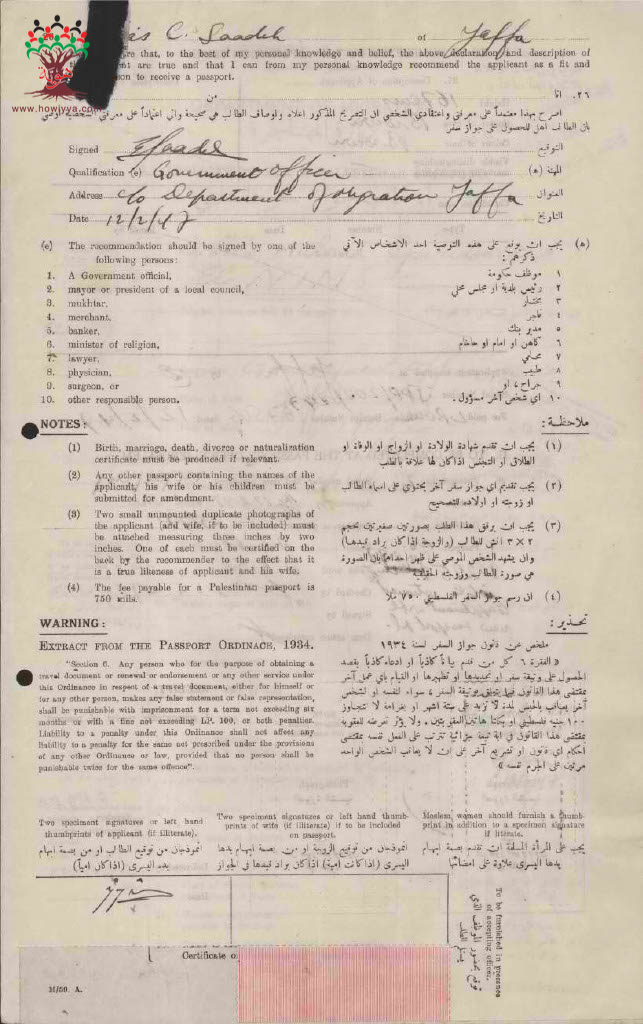 is C. Saadeh of Jaffa
are that, to the best of my personal knowledge and belief, the above declaration and description of
ent are true and that I can from my personal knowledge recommend the applicant as a fit and
rson to receive a passport.
www.howiyya.com
٢٦. انا من
اصرح بهذا معتمداً على معرفتي واعتقادي الشخصي ان التصريح المذكور اعلاه واوصاف الطالب هي صحيحة واني اعتماداً على معرفتي الشخصية اوصي
بان الطالب اهل للحصول على جواز سفر
Signed Saadeh التوقيع
Qualification (e) Government Officer المهنة (ه)
Address c/o Department of Migration Jaffa العنوان
Date 12/2/47 التاريخ
(e) The recommendation should be signed by one of the
following persons:
(ه) يجب ان يوقع على هذه التوصية احد الاشخاص الآتي
ذكرهم:
1. A Government official,
2. mayor or president of a local council,
3. mukhtar,
4. merchant,
5. banker,
6. minister of religion,
7. lawyer,
8. physician,
9. surgeon, or
10. other responsible person.
١ موظف حكومة
٢ رئيس بلدية او مجلس محلي
٣ مختار
٤ تاجر
٥ مدير بنك
٦ كاهن او امام او حاخام
٧ محامي
٨ طبيب
٩ جراح، او
١٠ اي شخص آخر مسؤول.
NOTES:
(1) Birth, marriage, death, divorce or naturalization
certificate must be produced if relevant.
(2) Any other passport containing the names of the
applicant, his wife or his children must be
submitted for amendment.
(3) Two small unmounted duplicate photographs of
the applicant (and wife, if to be included) must
be attached measuring three inches by two
inches. One of each must be certified on the
back by the recommender to the effect that it
is a true likeness of applicant and his wife.
(4) The fee payable for a Palestinian passport is
750 mils.
ملاحظة:
(١) يجب ان تقدم شهادة الولادة او الزواج او الوفاة او
الطلاق او التجنس اذا كان لها علاقة بالطلب
(٢) يجب تقديم اي جواز سفر آخر يحتوي على اسماء الطالب
او زوجته او اولاده للتصحيح
(٣) يجب ان يرفق هذا الطلب بصورتين صغيرتين بحجم
٢ × ٣ انش للطالب (والزوجة اذا كان يراد قيدها)
وان يشهد الشخص الموصي على ظهر احداها بان الصورة
هي صورة الطالب وزوجته الحقيقية
(٤) ان رسم جواز السفر الفلسطيني ٧٥٠ ملا
WARNING:
EXTRACT FROM THE PASSPORT ORDINACE, 1934.
"Section 6. Any person who for the purpose of obtaining a
travel document or renewal or endorsement or any other service under
this Ordinance in respect of a travel document, either for himself or
for any other person, makes any false statement or false representation,
shall be punishable with imprisonment for a term not exceeding six
months or with a fine not exceeding LP. 100, or both penalties.
Liability to a penalty under this Ordinance shall not affect any
liability to a penalty for the same not prescribed under the provisions
of any other Ordinance or law, provided that no person shall be
punishable twice for the same offence".
تحذير:
ملخص عن قانون جواز السفر لسنة ١٩٣٤
«الفقرة ٦ كل من قدم بياناً كاذباً او ادعاء كاذباً بقصد
الحصول على وثيقة سفر او تجديدها او تظهيرها او القيام باي عمل آخر
بمقتضى هذا القانون فيما يتعلق بوثيقة السفر، سواء لنفسه او لشخص
آخر يعاقب بالحبس لمدة لا تزيد على ستة اشهر او بغرامة لا تتجاوز
١٠٠ جنيه فلسطيني او بكلتا هاتين العقوبتين. ولا يؤثر تعرضه للعقوبة
بمقتضى هذا القانون في اية تبعة جزائية تترتب على الفعل نفسه بمقتضى
احكام اي قانون او تشريع آخر على ان لا يعاقب الشخص الواحد
مرتين على الجرم نفسه»
Two specimen signatures or left hand
thumbprints of applicant (if illiterate).
Two specimen signatures or left hand thumb-
prints of wife (if illiterate) if to be included
on passport.
Moslem women should furnish a thumb-
print in addition to a specimen signature
if literate.
انموذجان من توقيع الطالب او من بصمة ابهام
يده اليسرى (اذا كان امياً)
انموذجان من توقيع الزوجة او من بصمة ابهام يدها
اليسرى (اذا كانت امية) اذا كان يراد قيدها في الجواز
يجب على المرأة المسلمة ان تقدم بصمة ابهام
يدها اليسرى علاوة على امضائها
To be furnished in presence
of accepting officer.
توقع بحضور الموظف الذي
يستلم الطلب
Certificate o
M/50. A.